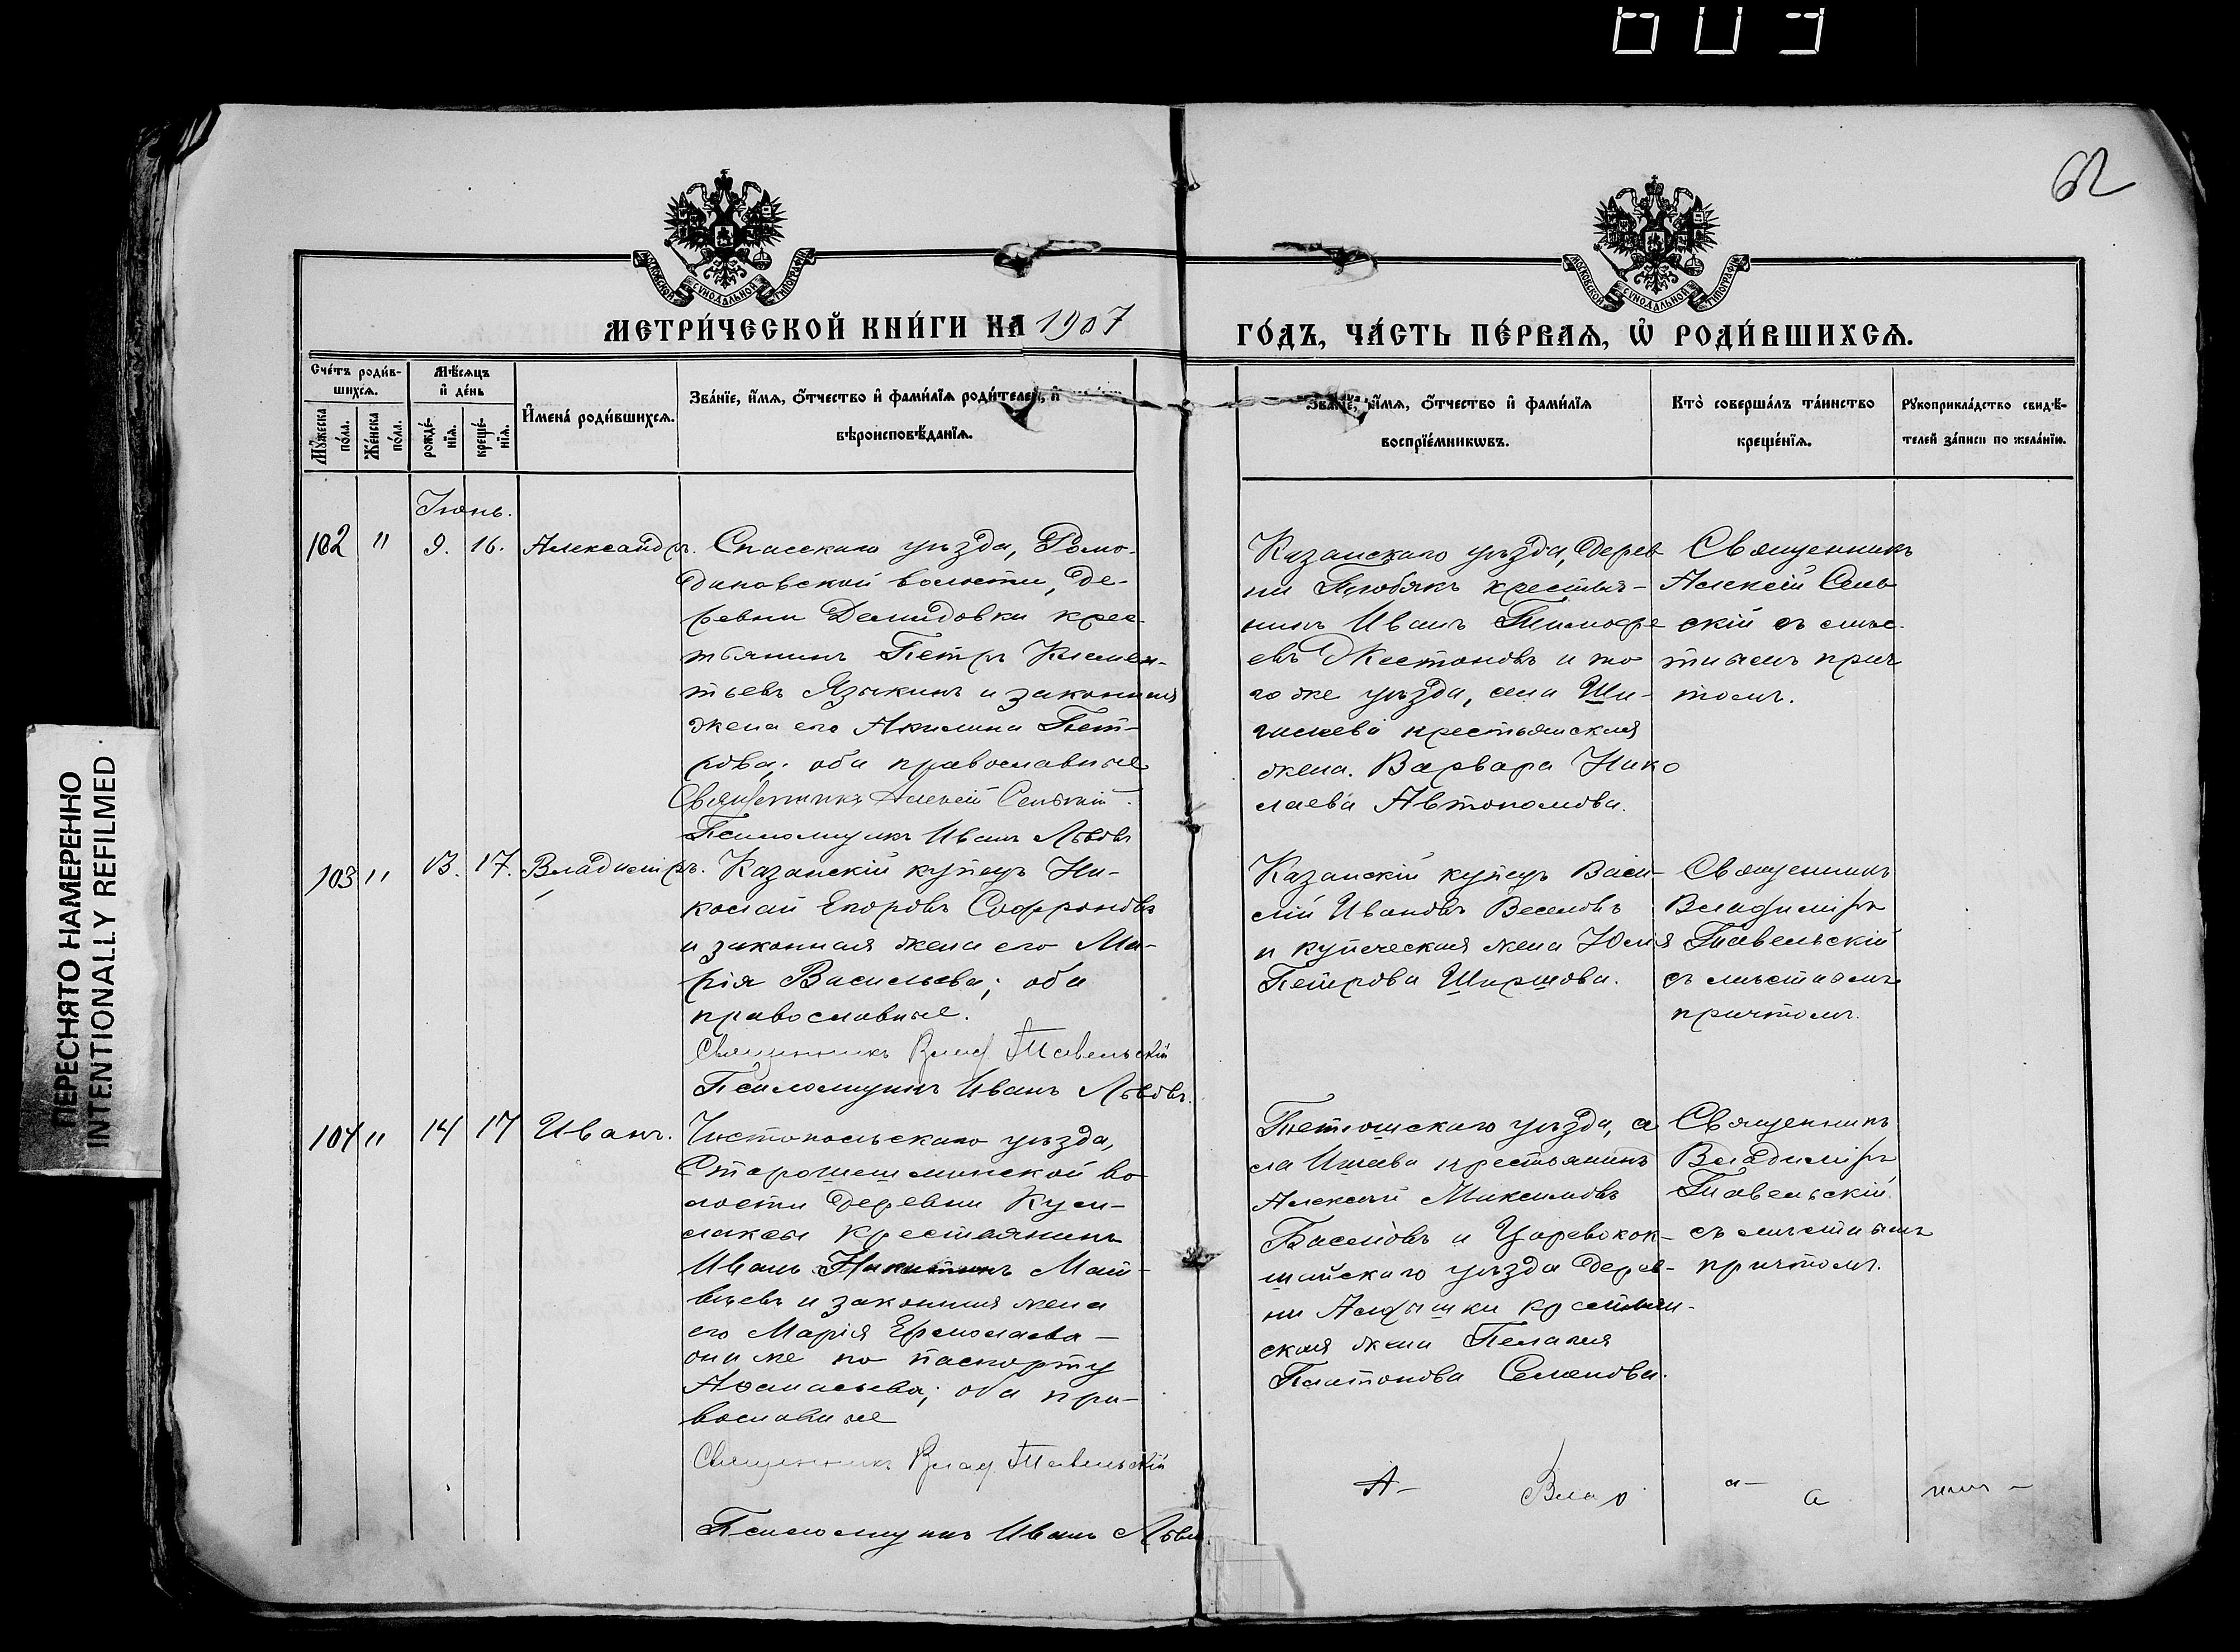 62
МОСКОВСКОЙ СѴНОДАЛЬНОЙ ТИПОГРАФІИ
МОСКОВСКОЙ СѴНОДАЛЬНОЙ ТИПОГРАФІИ
МЕТРИ́ЧЕСКОЙ КНИ́ГИ НА 1907
ГО́ДЪ, ЧА́СТЬ ПЕ́РВАѦ, Ѡ҆ РОДИ́ВШИХСѦ.
Сче́тъ роди́в-
шихсѧ.
Мꙋ́жеска по́ла.
Же́нска по́ла.
Мѣ́сѧцъ
и҆ де́нь
рожде́-
нїѧ.
креще́-
нїѧ.
И҆мена̀ роди́вшихсѧ.
Зва́нїе, и҆́мѧ, ѻ҆́тчество и҆ фами́лїѧ роди́телей, и҆
вѣроисповѣ́данїѧ.
Зва́нїе, и҆́мѧ, ѻ҆́тчество и҆ фами́лїѧ
воспрїе́мникѡвъ.
Кто̀ соверша́лъ та́инство
креще́нїѧ.
Рꙋкоприкла́дство свидѣ́-
телей за́писи по жела́нїю.
Іюнь.
102 " 9. 16. Александръ.
Спасскаго уѣзда, Ромо-
дановской волости, де-
ревни Демидовки крес-
тьянинъ Петръ Климен-
тьевъ Языкинъ и законная
жена его Акилина Пет-
рова; оба православные
Священникъ Алексій Сельскій.
Псаломщикъ Иванъ Львовъ
Казанскаго уѣзда, дерев
ни Тюбякъ крестья-
нинъ Иванъ Тимофе
евъ Жестоновъ и то
го же уѣзда, села Ши-
гилеева крестьянская
жена Варвара Нико
лаева Автономова.
Священникъ
Алексій Сель
скій съ мѣс-
тнымъ прич
томъ.
103 " 13. 17. Владиміръ.
Казанскій купецъ Ни-
колай Егоровъ Софроновъ
и законная жена его Ма-
рія Васильева; оба
православные.
Священникъ Влад Тавельскій
Псаломщикъ Иванъ Львовъ.
Казанскій купецъ Васи-
лій Ивановъ Веселовъ
и купеческая жена Юлія
Петрова Ширшова.
Священникъ
Владиміръ
Тавельскій
съ мѣстнымъ
причтомъ.
104 " 14 17 Иванъ.
Чистопольскаго уѣзда,
Старошешминской во
лости деревни
крестьянинъ
Иванъ Никитинъ Мат-
вѣевъ и законная жена
его Марія Ермолаева —
она же по паспорту
Аѳанасьева; оба пра-
вославные
Священникъ Влад. Тавельскій
Псаломщикъ Иванъ Львов
Тетюшскаго уѣзда, се
ла крестьянинъ
Алексѣй Максимовъ
и Царевокок-
шайскаго уѣзда дерев-
ни крестьян-
ская жена Пелагія
Платонова Семенова.
Священникъ
Владиміръ
Тавельскій
съ мѣстнымъ
причтомъ.
ПЕРЕСНЯТО НАМЕРЕННО
INTENTIONALLY REFILMED